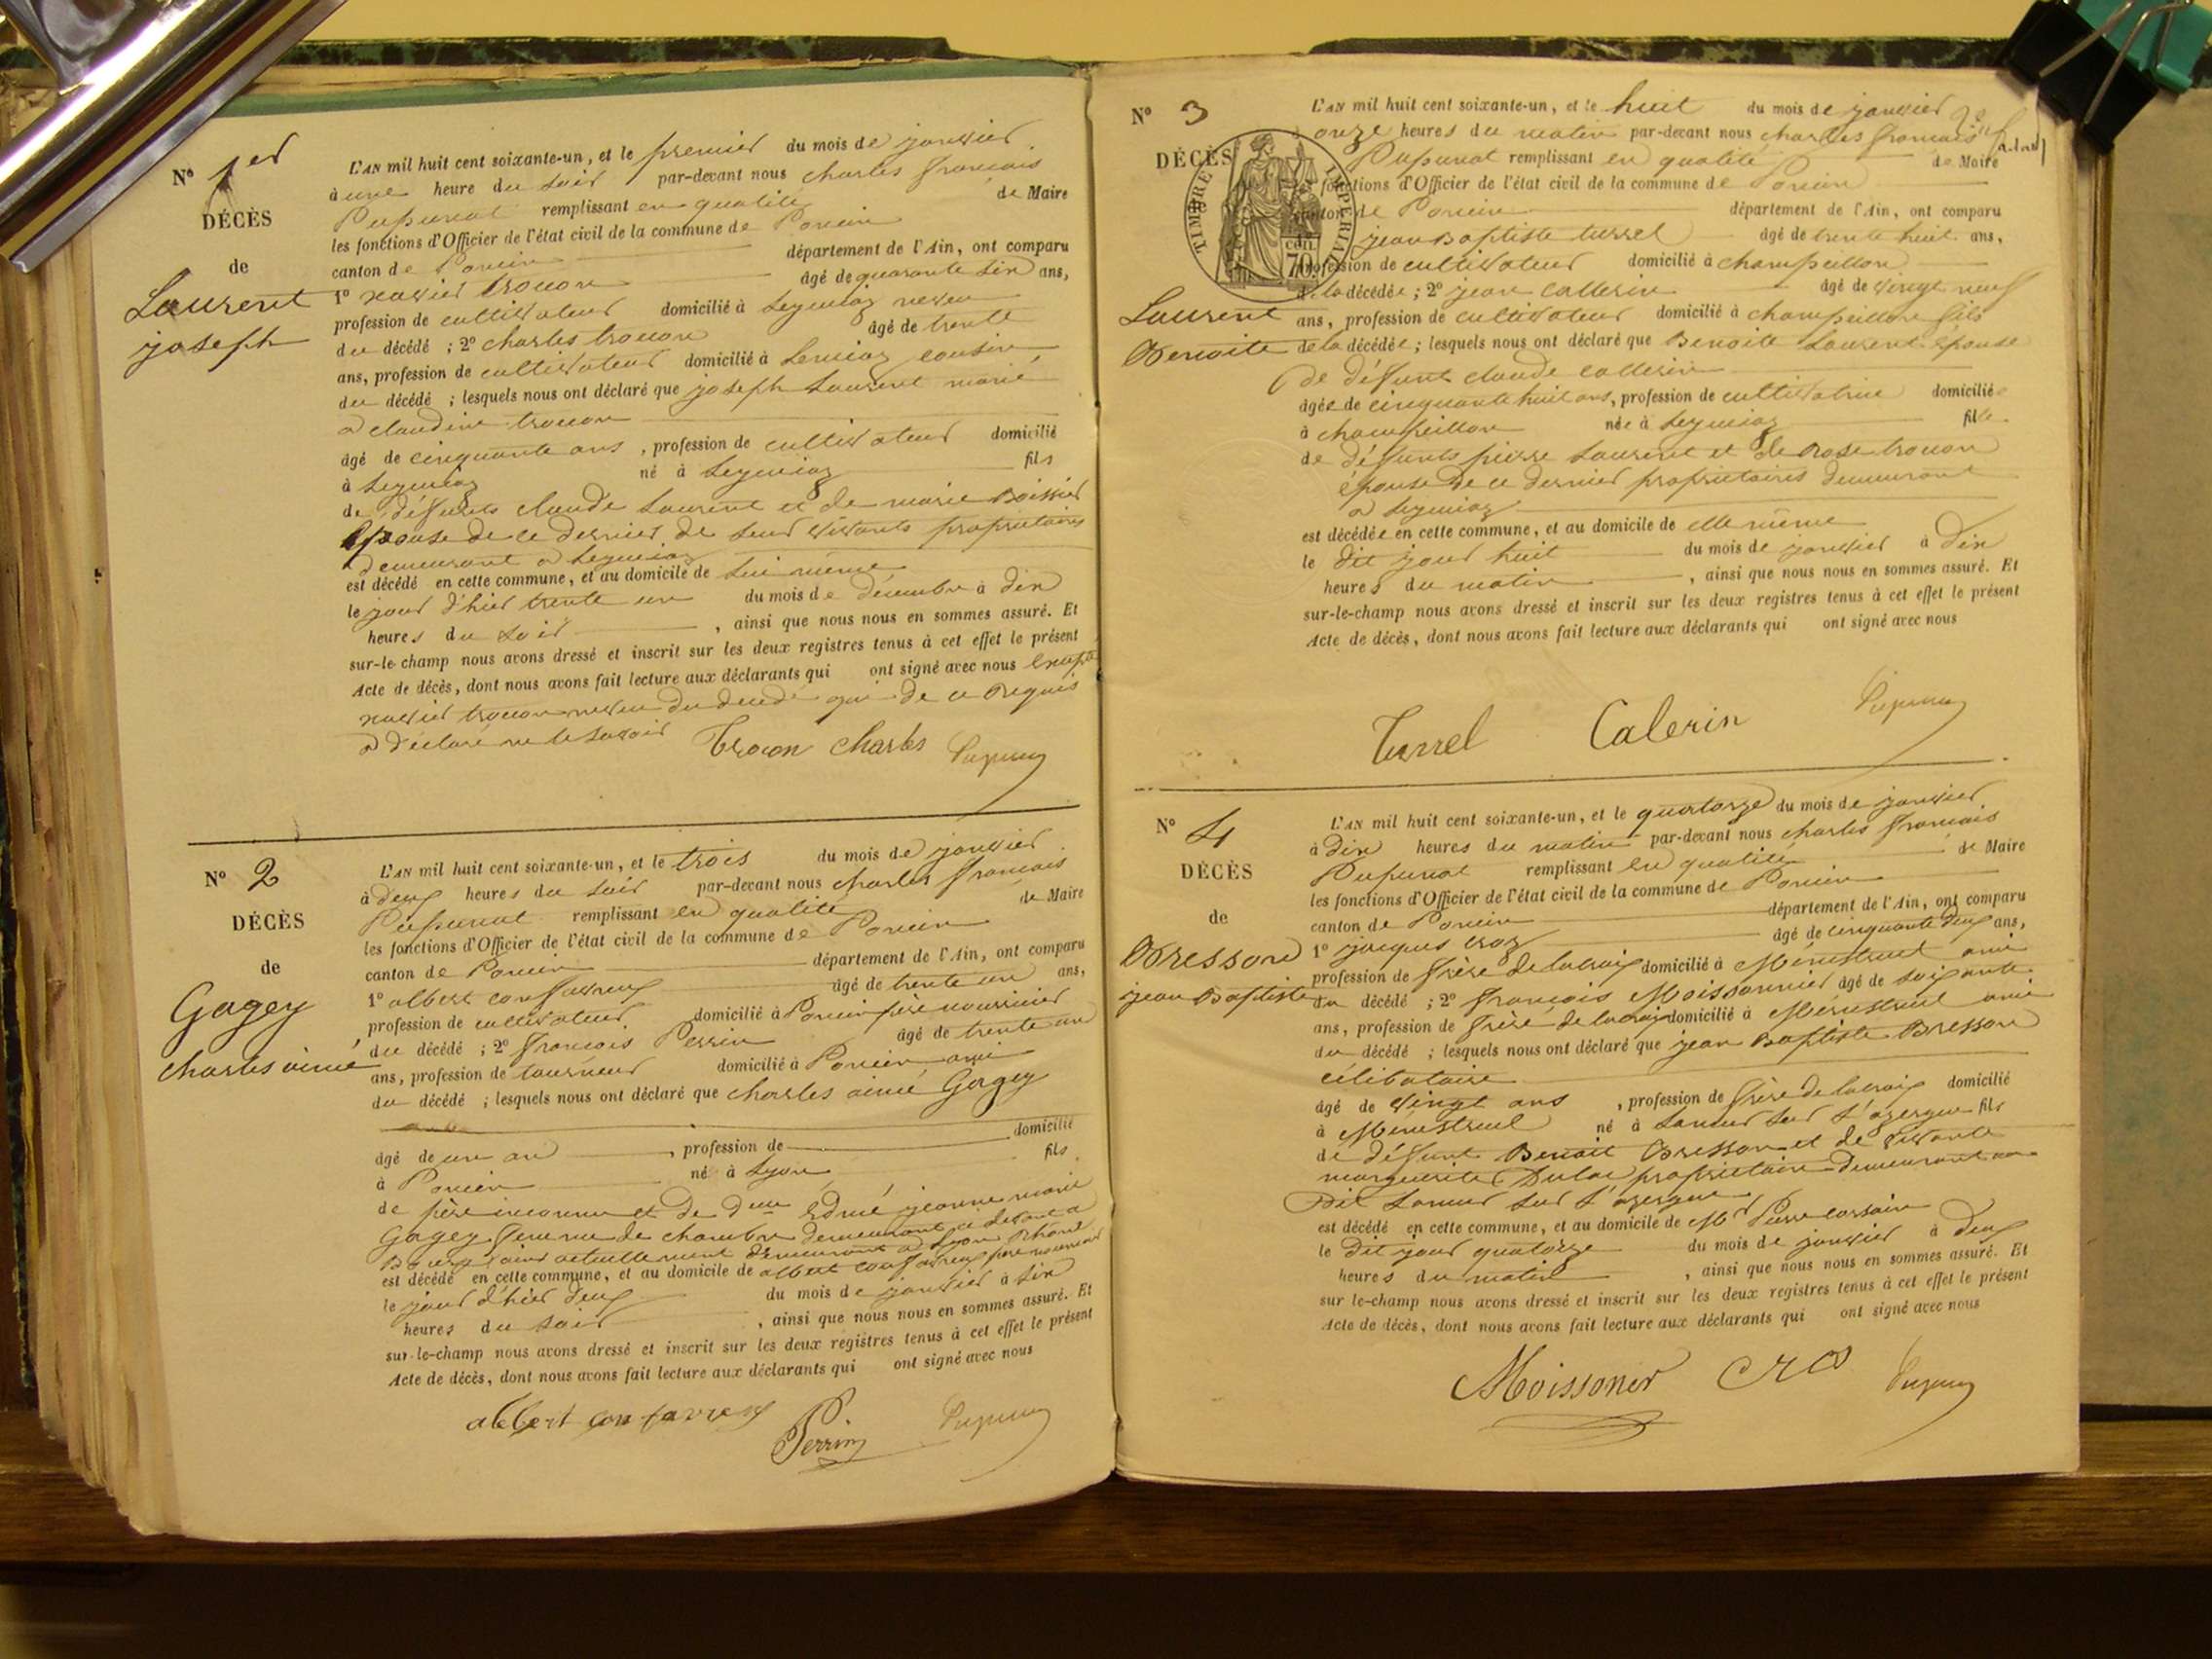 N° 1er
DÉCÈS
de
Laurent
joseph
L'AN mil huit cent soixante-un, et le premier du mois de janvier
à une heure du soir par-devant nous charles francois
Pupunat remplissant en qualité de Maire
les fonctions d'Officier de l'état civil de la commune de Poncin
canton de Poncin département de l'Ain, ont comparu
1° xavier trocon âgé de quarante six ans,
profession de cultivateur domicilié à Leymiaz neveu
du décédé ; 2° charles trocon âgé de trente
ans, profession de cultivateur domicilié à Lemiaz cousin
du décédé ; lesquels nous ont déclaré que joseph Laurent marié
a claudine trocon
âgé de cinquante ans, profession de cultivateur domicilié
à Leymiaz né à Leymiaz fils
de défunts claude Laurent et de marie Boissier
épouse de ce dernier de leur vivants propriétaires
demeurant a Leymiaz
est décédé en cette commune, et au domicile de lui même
le jour d'hier trente un du mois de décembre à dix
heures du soir, ainsi que nous nous en sommes assuré. Et
sur-le-champ nous avons dressé et inscrit sur les deux registres tenus à cet effet le présent
Acte de décès, dont nous avons fait lecture aux déclarants qui ont signé avec nous excepté
xavier trocon neveu du décédé qui de ce requis
a déclaré ne le savoir
Trocon charles
N° 2
DÉCÈS
de
Gagey
charles aimé
L'AN mil huit cent soixante-un, et le trois du mois de janvier
à deux heures du soir par-devant nous charles francois
Pupunat remplissant en qualité de Maire
les fonctions d'Officier de l'état civil de la commune de Poncin
canton de Poncin département de l'Ain, ont comparu
1° albert confavreux âgé de trente un ans,
profession de cultivateur domicilié à Poncin père nourricier
du décédé ; 2° francois Perrin âgé de trente un
ans, profession de tourneur domicilié à Poncin ami
du décédé ; lesquels nous ont déclaré que charles aimé Gagey
âgé de un an, profession de domicilié
à Poncin né à Lyon fils
de père inconnu et de Edmé jeanne marie
Gagey femme de chambre demeurant ci devant a
actuellement demeurant a Lyon Rhone
est décédé en cette commune, et au domicile de albert confavreux père nourricier
le jour d'hier deux du mois de janvier à six
heures du soir, ainsi que nous nous en sommes assuré. Et
sur-le-champ nous avons dressé et inscrit sur les deux registres tenus à cet effet le présent
Acte de décès, dont nous avons fait lecture aux déclarants qui ont signé avec nous
albert confavreux
Perrin
N° 3
DÉCÈS
TIMBRE IMPERIAL
70 C
Laurent
Benoite
L'AN mil huit cent soixante-un, et le huit du mois de janvier
onze heures du matin par-devant nous charles francois
Pupunat remplissant en qualité de Maire
fonctions d'Officier de l'état civil de la commune de Poncin
canton de Poncin département de l'Ain, ont comparu
jean Baptiste turrel âgé de trente huit ans,
profession de cultivateur domicilié à champeillon
de la décédée ; 2° jean callerin âgé de vingt neuf
ans, profession de cultivateur domicilié à champeillon fils
de la décédée ; lesquels nous ont déclaré que Benoite Laurent épouse
de défunt claude callerin
âgée de cinquante huit ans, profession de cultivatrice domiciliée
à champeillon née à Leymiaz fille
de défunts pierre Laurent et de Rose trocon
épouse de ce dernier propriétaires demeurant
a Leymiaz
est décédée en cette commune, et au domicile de elle même
le dit jour huit du mois de janvier à dix
heures du matin, ainsi que nous nous en sommes assuré. Et
sur-le-champ nous avons dressé et inscrit sur les deux registres tenus à cet effet le présent
Acte de décès, dont nous avons fait lecture aux déclarants qui ont signé avec nous
Turrel Calerin
N° 4
DÉCÈS
de
Bresson
jean Baptiste
L'AN mil huit cent soixante-un, et le quatorze du mois de janvier
à dix heures du matin par-devant nous charles francois
Pupunat remplissant en qualité de Maire
les fonctions d'Officier de l'état civil de la commune de Poncin
canton de Poncin département de l'Ain, ont comparu
1° jacques croz âgé de cinquante deux ans,
profession de frère de lacroix domicilié à Ménestruel ami
du décédé ; 2° francois Moissonnier âgé de soixante
ans, profession de frère de lacroix domicilié à Ménestruel ami
du décédé ; lesquels nous ont déclaré que jean Baptiste Bresson
célibataire
âgé de vingt ans, profession de frère de lacroix domicilié
à Ménestruel né à Lamur sur L'azergue fils
de défunt Benoit Bresson et de vivante
marguerite Dulac propriétaire demeurant au
dit Lamur sur L'azergue
est décédé en cette commune, et au domicile de Mr Pierre
le dit jour quatorze du mois de janvier à deux
heures du matin, ainsi que nous nous en sommes assuré. Et
sur le-champ nous avons dressé et inscrit sur les deux registres tenus à cet effet le présent
Acte de décès, dont nous avons fait lecture aux déclarants qui ont signé avec nous
Moissonier cros